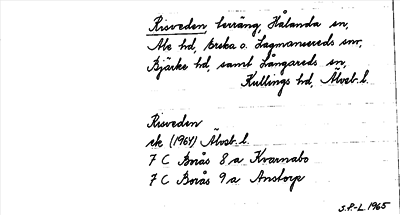 Risveden, terräng, Hålanda sn,
Ale hd, Breka o. Lagmansereds snr,
Bjärke hd, samt Långareds sn,
Kullings hd, Älvsb. l.
Risveden
ek (1964) Älvsb. l.
7 C Borås 8 a Kvarnabo
7 C Borås 9 a Anstorp
S.P.-L. 1965